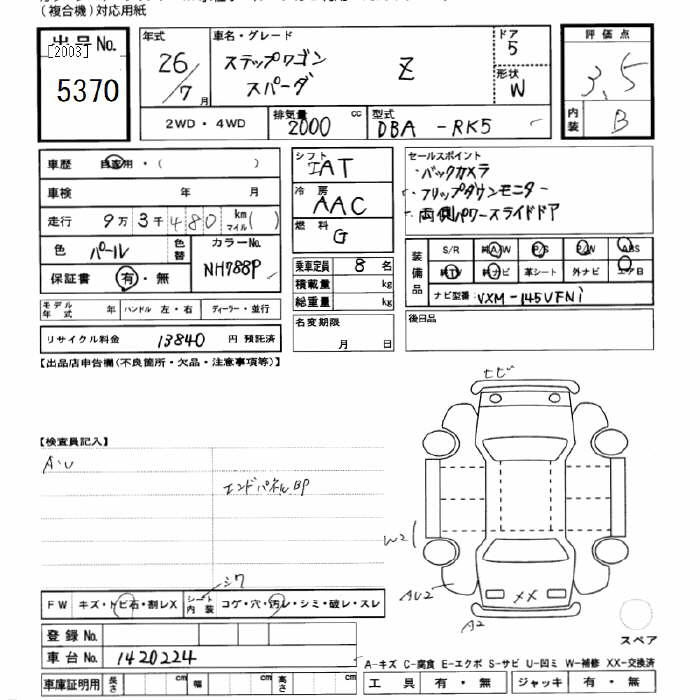 (複合機)対応用紙
出品No.
[2003]
5370
年式
26/7月
車名・グレード
ステップワゴン
スパーダ
Z
ドア
5
形状
W
2WD・4WD
排気量
2000 cc
型式
DBA -RK5
評価点
3.5
内装
B
車歴 自家用・( )
車検 年 月
走行 9万3千480 km マイル( )
色 パール
色替
カラーNo.
NH788P
保証書 有・無
モデル年式 年 ハンドル 左・右 ディーラー・並行
リサイクル料金 13840 円 預託済
シフト
IAT
冷房
AAC
燃料
G
乗車定員 8 名
積載量 kg
総重量 kg
名変期限
月 日
セールスポイント
・バックカメラ
・フリップダウンモニター
・両側パワースライドドア
装備品
S/R 純A/W P/S P/W ABS
純TV 純ナビ 革シート 外ナビ エア日
ナビ型番: VXM-145VFNi
後日品
【出品店申告欄(不良箇所・欠品・注意事項等)】
【検査員記入】
A・U
エンドパネルBP
ヒビ
W2
AU2
A2
XX
スペア
シワ
FW キズ・トビ石・割レX シート内装 コゲ・穴・汚レ・シミ・破レ・スレ
登録No.
車台No. 1420224
車庫証明用 長さ cm 幅 cm 高さ cm
A-キズ C-腐食 E-エクボ S-サビ U-凹ミ W-補修 XX-交換済
工具 有・無 ジャッキ 有・無